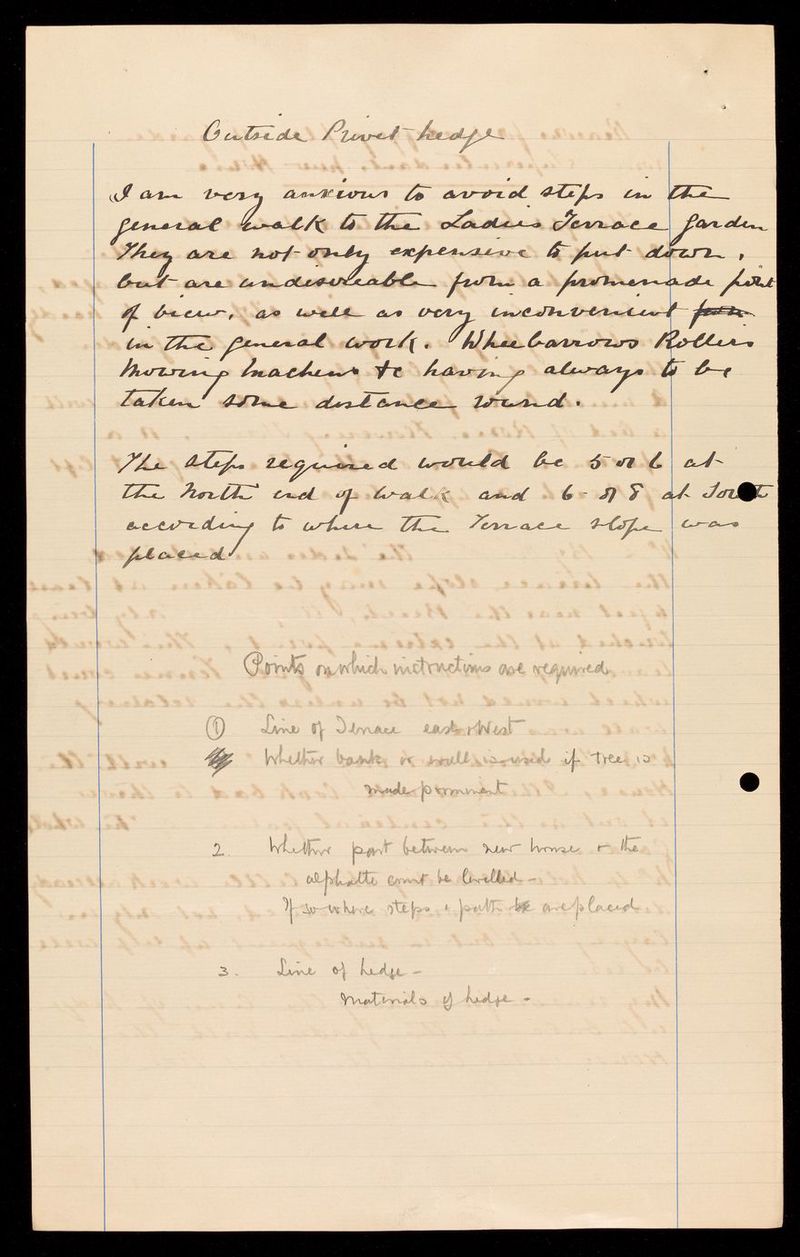 Outside Privet hedge
I am very anxious to avoid steps in the
general walk to the Ladies Terrace garden
They are not only expensive to put down,
but are undesireable from a promenade point
of view, as well as very inconvenient
in the general work. Wheelbarrows Rollers
Mowing Machens &c having always to be
taken some distance round.
The steps required would be 5 or 6 at
the North end of walk and 6 - or 8 at South
according to where the Terrace slope was
placed
Points on which instructions are required
① Line of Terrace east & West
Whether bank or wall is used if tree is
made permanent
2. Whether part between new house & the
asphalte court be levelled -
If so where steps & path are placed
3. Line of hedge -
Materials of hedge -